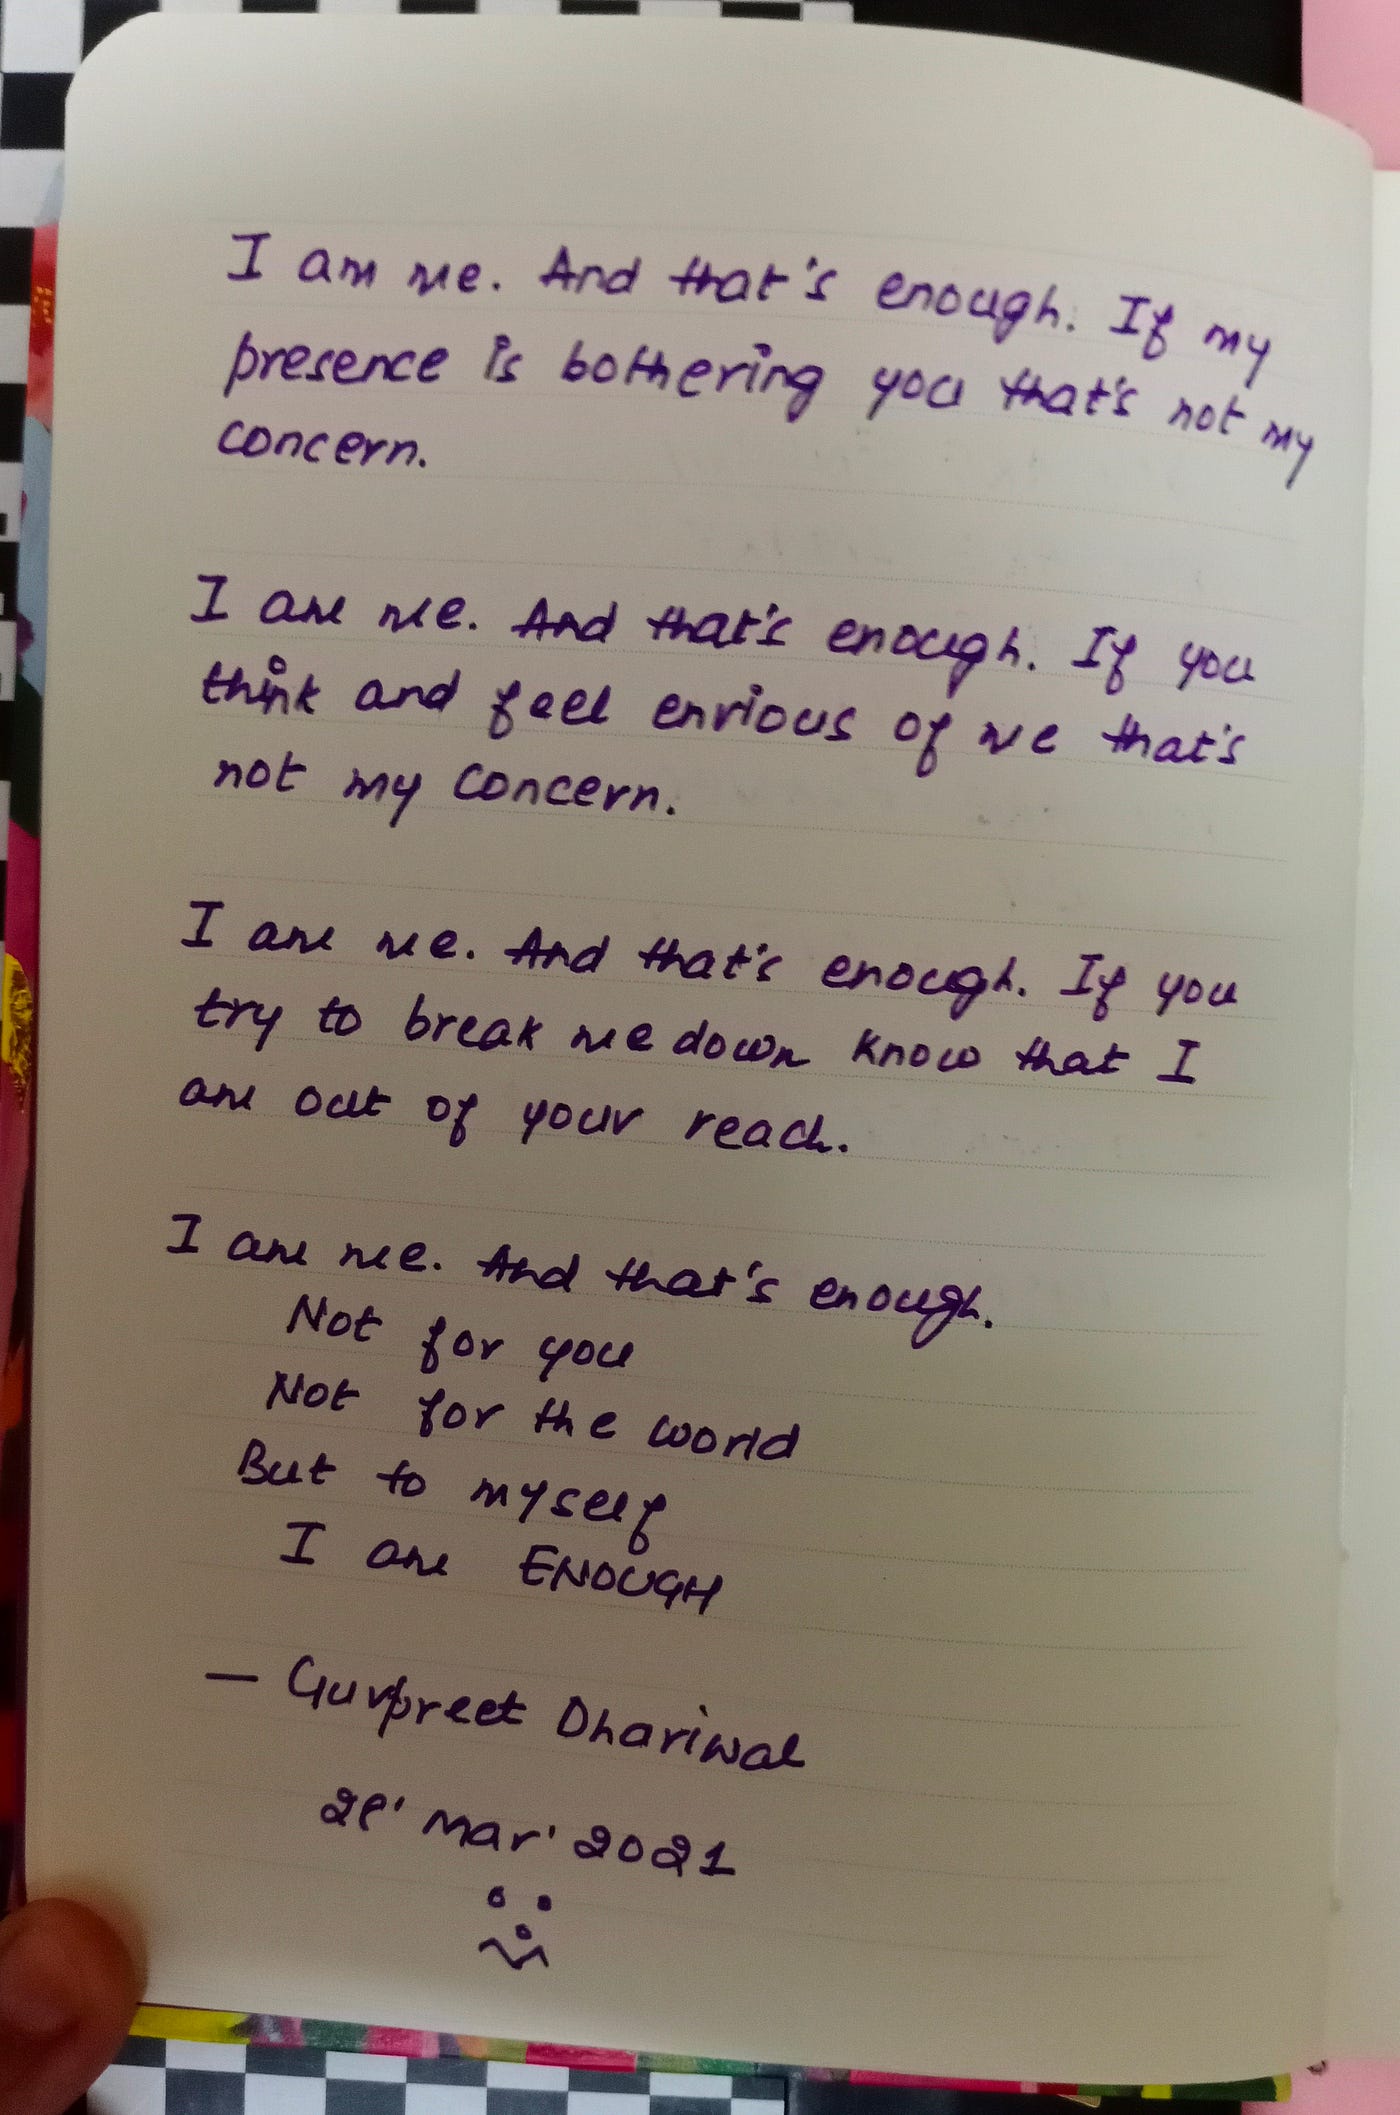 I am me. And that's enough. If my
presence is bothering you that's not my
concern.
I am me. And that's enough. If you
think and feel envious of me that's
not my concern.
I am me. And that's enough. If you
try to break me down know that I
am out of your reach.
I am me. And that's enough.
Not for you
Not for the world
But to myself
I am ENOUGH
— Gurpreet Dhariwal
28' Mar' 2021